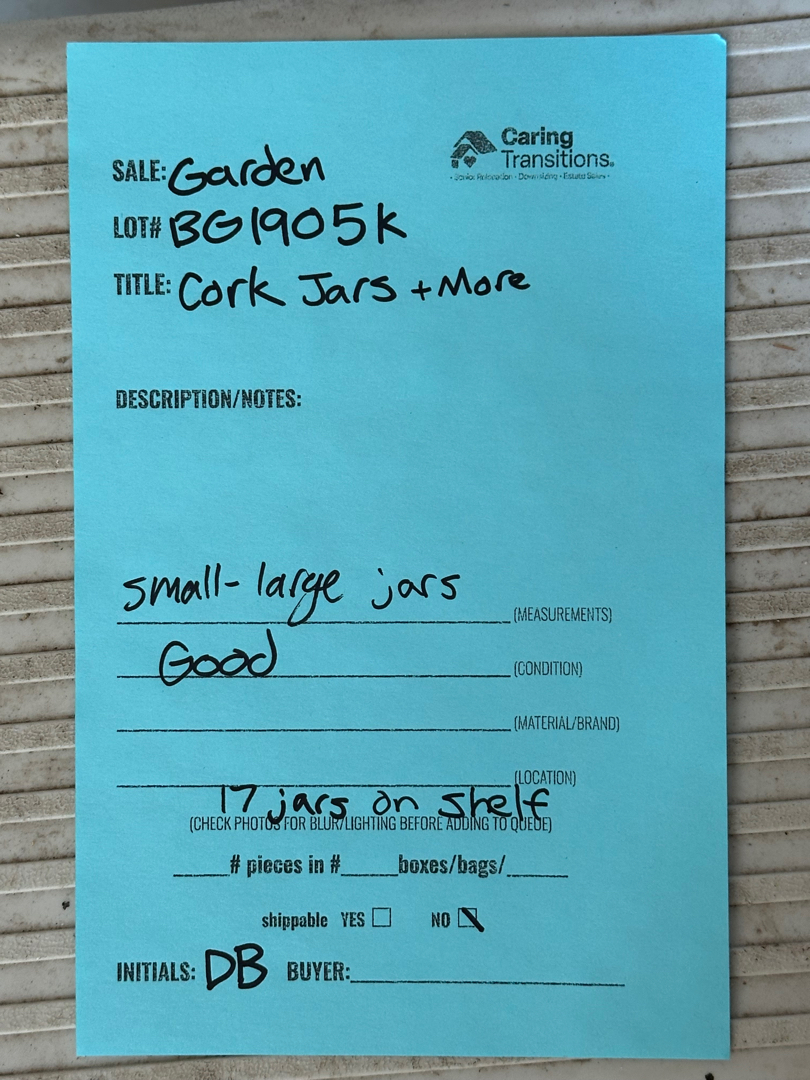 Caring
Transitions.
• Senior Relocation • Downsizing • Estate Sales •
SALE: Garden
LOT# BG1905K
TITLE: Cork Jars + More
DESCRIPTION/NOTES:
small-large jars (MEASUREMENTS)
Good (CONDITION)
(MATERIAL/BRAND)
(LOCATION)
17 jars on shelf
(CHECK PHOTOS FOR BLUR/LIGHTING BEFORE ADDING TO QUEUE)
_____# pieces in #_____boxes/bags/_____
shippable YES NO
INITIALS: DB BUYER: